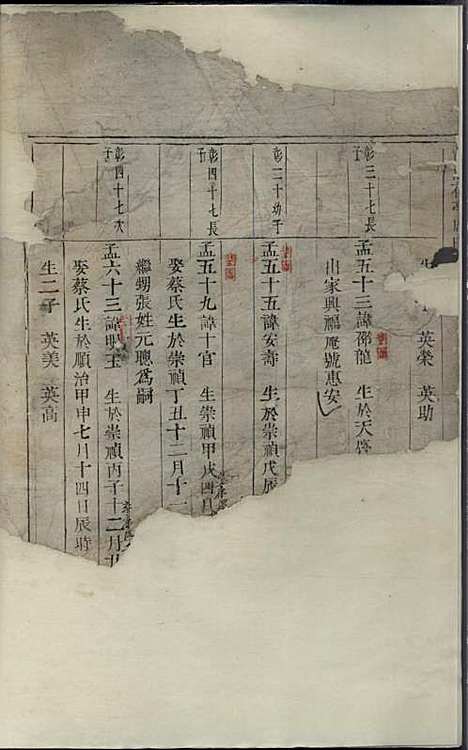 英榮 英助
彰三十七長子
孟五十三諱邵龍 生於天啓
出家興福庵號惠安
彰三十幼子
孟五十五諱安壽 生於崇禎戊辰
彰四十七長子
孟五十九諱十官 生崇禎甲戌四月
娶蔡氏生於崇禎丁丑十二月十二
繼甥張姓元聰為嗣
彰四十七次子
孟六十三諱 玉 生於崇禎丙子十二月
娶蔡氏生於順治甲申七月十四日辰時
生二子 英美 英高